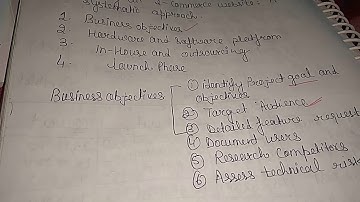 e-commerce website:
systematic approach.
1. Business objectives
2. Hardware and software platform
3. In-House and outsourcing
4. Launch Phase
Business objectives
① identify Project goal and
objectives
② Target Audience
③ Detailed feature request
④ Document users
⑤ Research Competitors
⑥ Assess technical risk